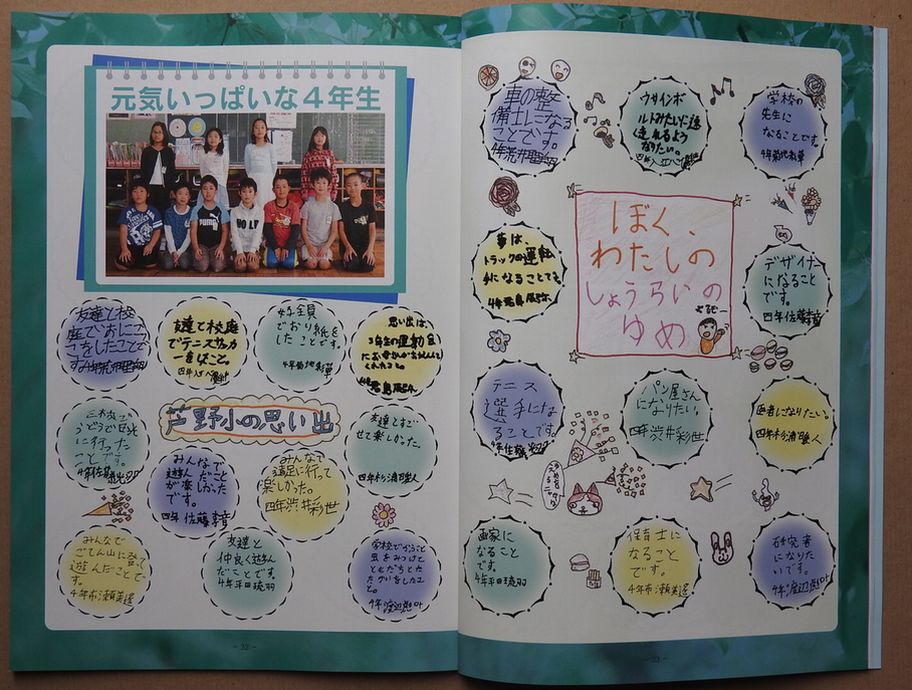 元気いっぱいな4年生
PUMA
友達と校
庭でおにごっ
こをしたことで
す。
友達と校庭
でテニスやサッカ
ーをしたこと。
四年
全員
でおり紙を
したことです。
4年菊地彩華
思い出は、
3年生の運動会
くれたこと。
芦野小の思い出
に行った
ことです。
4年佐藤
友達とすご
せて楽しかった。
四年杉浦
みんなで
遊んだこと
が楽しかった
です。
四年 佐藤
みんなで
遠足に行って
楽しかった。
四年渋井彩世
みんなで
ごてん山に登って
遊んだことで
す。
4年市瀬美遥
友達と
仲良く遊ん
だことです。
4年平田琉羽
学校で
見をみつけて
ともだちとた
たかいをしたこ
と。
4年渡辺
- 32 -
車の整
備士になる
ことです。
ウサインボ
ルトみたいに速
く走れるよう
なりたい。
学校の
先生に
なることです。
4年菊地彩華
夢は、
トラックの運転
手になることです。
ぼく、
わたしの
しょうらいの
ゆめ
デザイナー
になること
です。
四年佐藤
テニス
選手にな
ることです。
4年佐藤
パン屋さん
になりたい。
四年渋井彩世
医者になりたい。
四年杉浦
画家に
なること
です。
4年平田琉羽
保育士に
なること
です。
4年市瀬美遥
研究者
になりた
いです。
4年渡辺
- 33 -